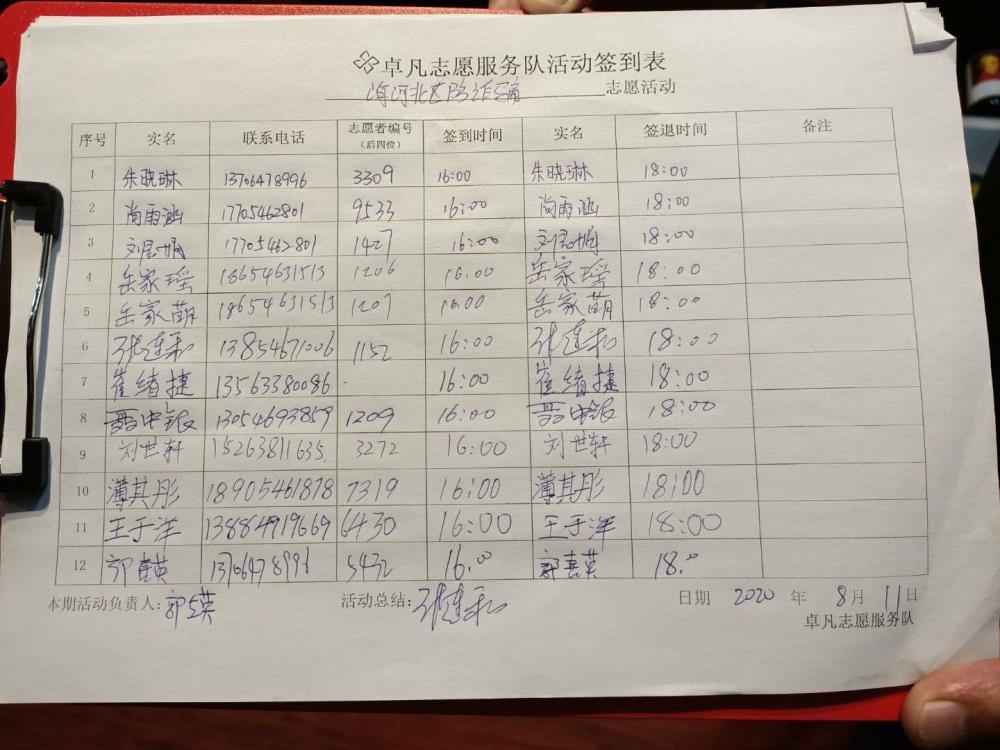 卓凡志愿服务队活动签到表
志愿活动
序号 实名 联系电话 志愿者编号（后四位） 签到时间 实名 签退时间 备注
1 朱晓琳 13706478996 3309 16:00 朱晓琳 18:00
2 尚雨涵 17705462801 9533 16:00 尚雨涵 18:00
3 刘君娟 17705462801 1427 16:00 刘君娟 18:00
4 岳家瑶 18654631513 1206 16:00 岳家瑶 18:00
5 岳家萌 18654631513 1207 16:00 岳家萌 18:00
6 张连和 13854671006 1152 16:00 张连和 18:00
7 崔绪捷 13563380086 16:00 崔绪捷 18:00
8 13054693859 1209 16:00 18:00
9 刘世轩 15263811635 3272 16:00 刘世轩 18:00
10 薄其彤 18905461878 7319 16:00 薄其彤 18:00
11 王于洋 13884919669 6430 16:00 王于洋 18:00
12 郭喜英 13706478996 5432 16.00 郭喜英 18.00
本期活动负责人: 郭喜英 活动总结: 张连和 日期 2020 年 8月 11日
卓凡志愿服务队